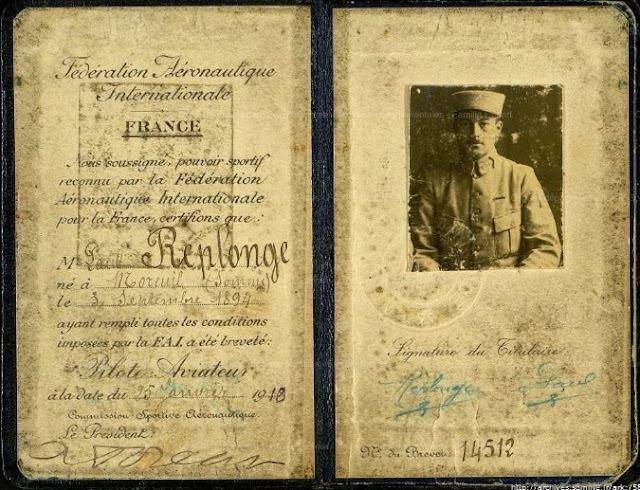 Fédération Aéronautique
Internationale
FRANCE
Nous soussigné, pouvoir sportif
reconnu par la Fédération
Aéronautique Internationale
pour la France, certifions que :
M Paul Replonge
né à Moreuil (Somme)
le 3 Septembre 1894
ayant rempli toutes les conditions
imposées par la F.A.I. a été breveté :
Pilote-Aviateur
à la date du 25 Janvier 1918
Commission Sportive Aéronautique.
Le Président :
Signature du Titulaire
Replonge Paul
N° du Brevet 14512